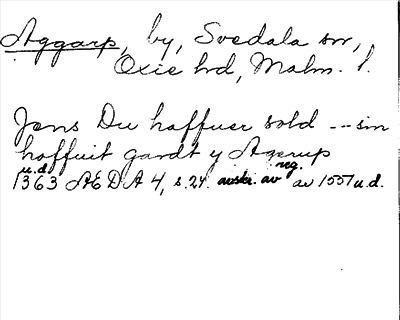 Aggarp, by, Svedala sn,
Oxie hd, Malm. l.
Jens Du haffuer sold -- sin
hoffuit gardt y Agerup
u.d.
1363 ÆDA 4, s. 24. avskr. av reg. av 1551 u.d.